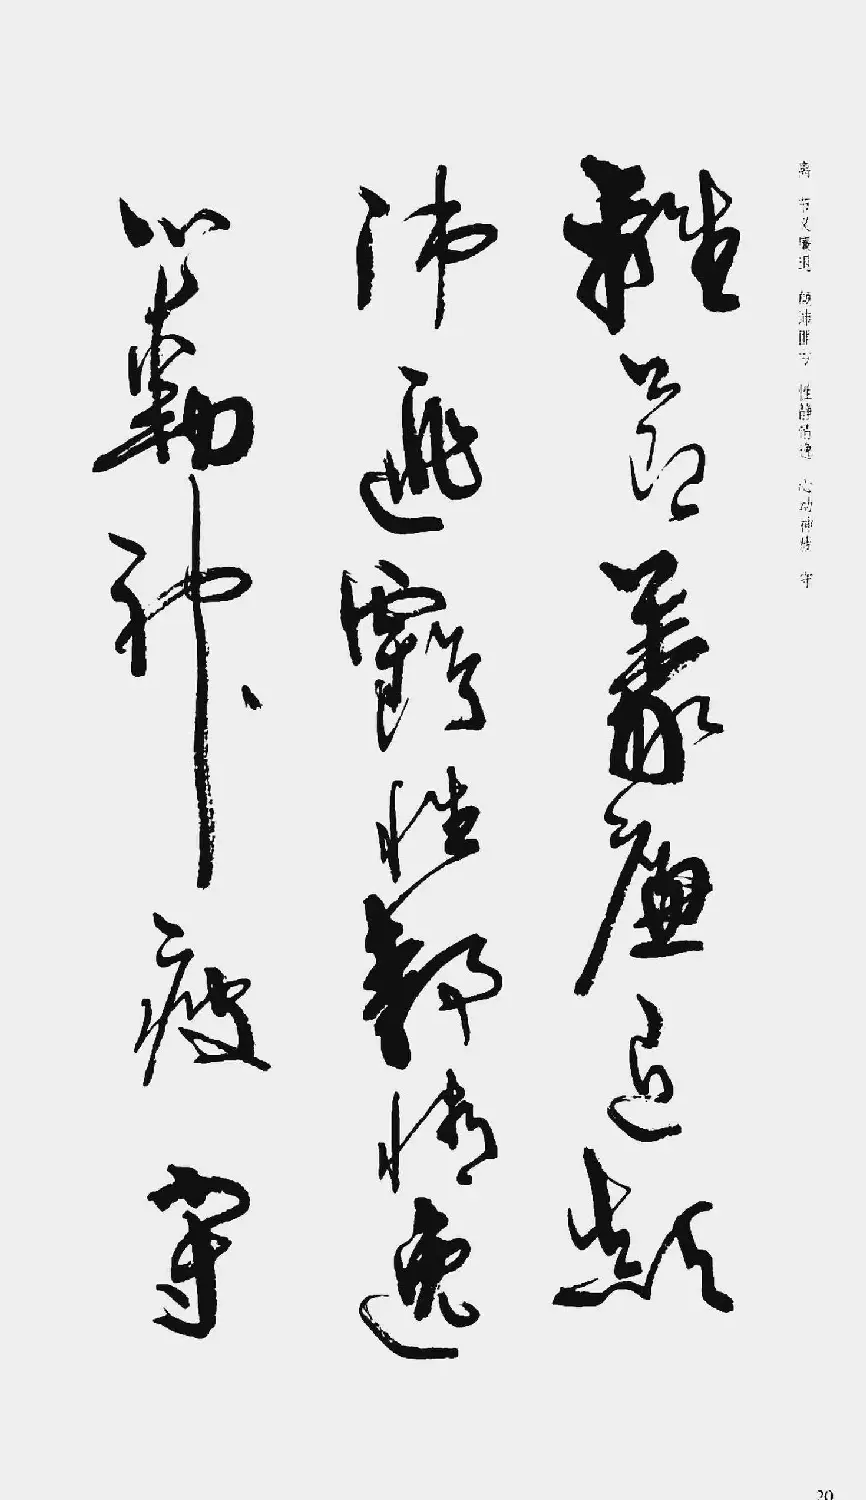 离 节义廉退 颠沛匪亏 性静情逸 心动神疲 守
離節義廉退顛
沛匪虧性靜情逸
心動神疲守
20